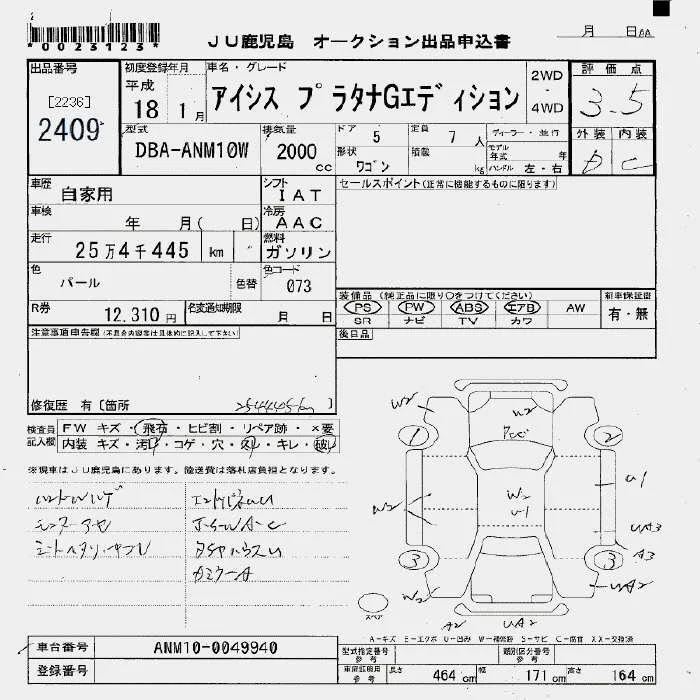 *0023123*
JU鹿児島 オークション出品申込書
月 日
出品番号
[2236]
2409
初度登録年月
平成
18 1月
車名・グレード
アイシス プラタナGエディション
2WD
・
4WD
評価点
3.5
外装 内装
D C
型式
DBA-ANM10W
排気量
2000
cc
ドア 5
定員 7 人
形状 ワゴン
積載 kg
ディーラー・並行
モデル年式 年
ハンドル 左・右
車歴
自家用
シフト
IAT
セールスポイント(正常に機能するものに限ります)
車検
年 月( 日)
冷房
AAC
走行
25万4千445 km
燃料
ガソリン
色
パール
色替
色コード
073
R券
12,310円
名変通知期限
月 日
装備品(純正品に限り○をつけてください)
PS PW ABS エアB AW
SR ナビ TV カワ
新車保証書
有・無
注意事項申告欄(不具合内容等は具体的に記入して下さい)
後日品
修復歴 有〔箇所 254445km 〕
検査員記入欄
FW キズ・飛石・ヒビ割・リペア跡・×要
内装 キズ・汚れ・コゲ・穴・スレ・キレ・破レ
※現車はJU鹿児島にあります。陸送費は落札店負担となります。
W2
W2
1
2
W2
W2
U1
U1
UA3
A3
3
3
W2
UA2
A2
UA2
スペア
A-キズ E-エクボ U-凹み W-補修跡 S-サビ C-腐食 XX-交換済
車台番号
ANM10-0049940
登録番号
型式指定番号
参考
類別区分番号
参考
車庫証明用
参考
長さ 464cm
幅 171cm
高さ 164cm